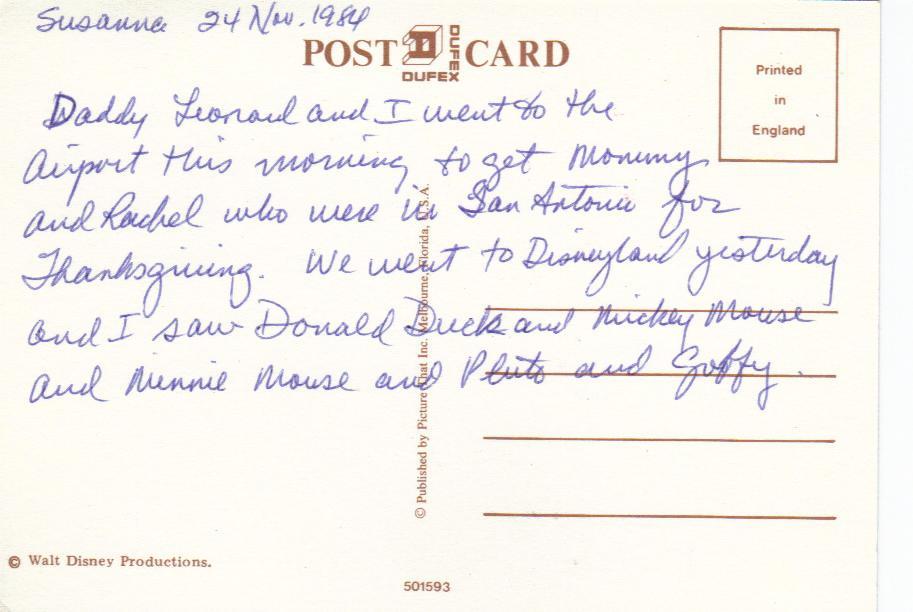 Susanna 24 Nov. 1984
POST CARD
DUFEX
DUFEX
Printed
in
England
Daddy Leonard and I went to the
Airport this morning to get Mommy
and Rachel who were in San Antonio for
Thanksgiving. We went to Disneyland yesterday
and I saw Donald Duck and Mickey Mouse
and Minnie Mouse and Pluto and Goffy.
© Published by Picture That Inc. Melbourne, Florida, U.S.A.
© Walt Disney Productions.
501593